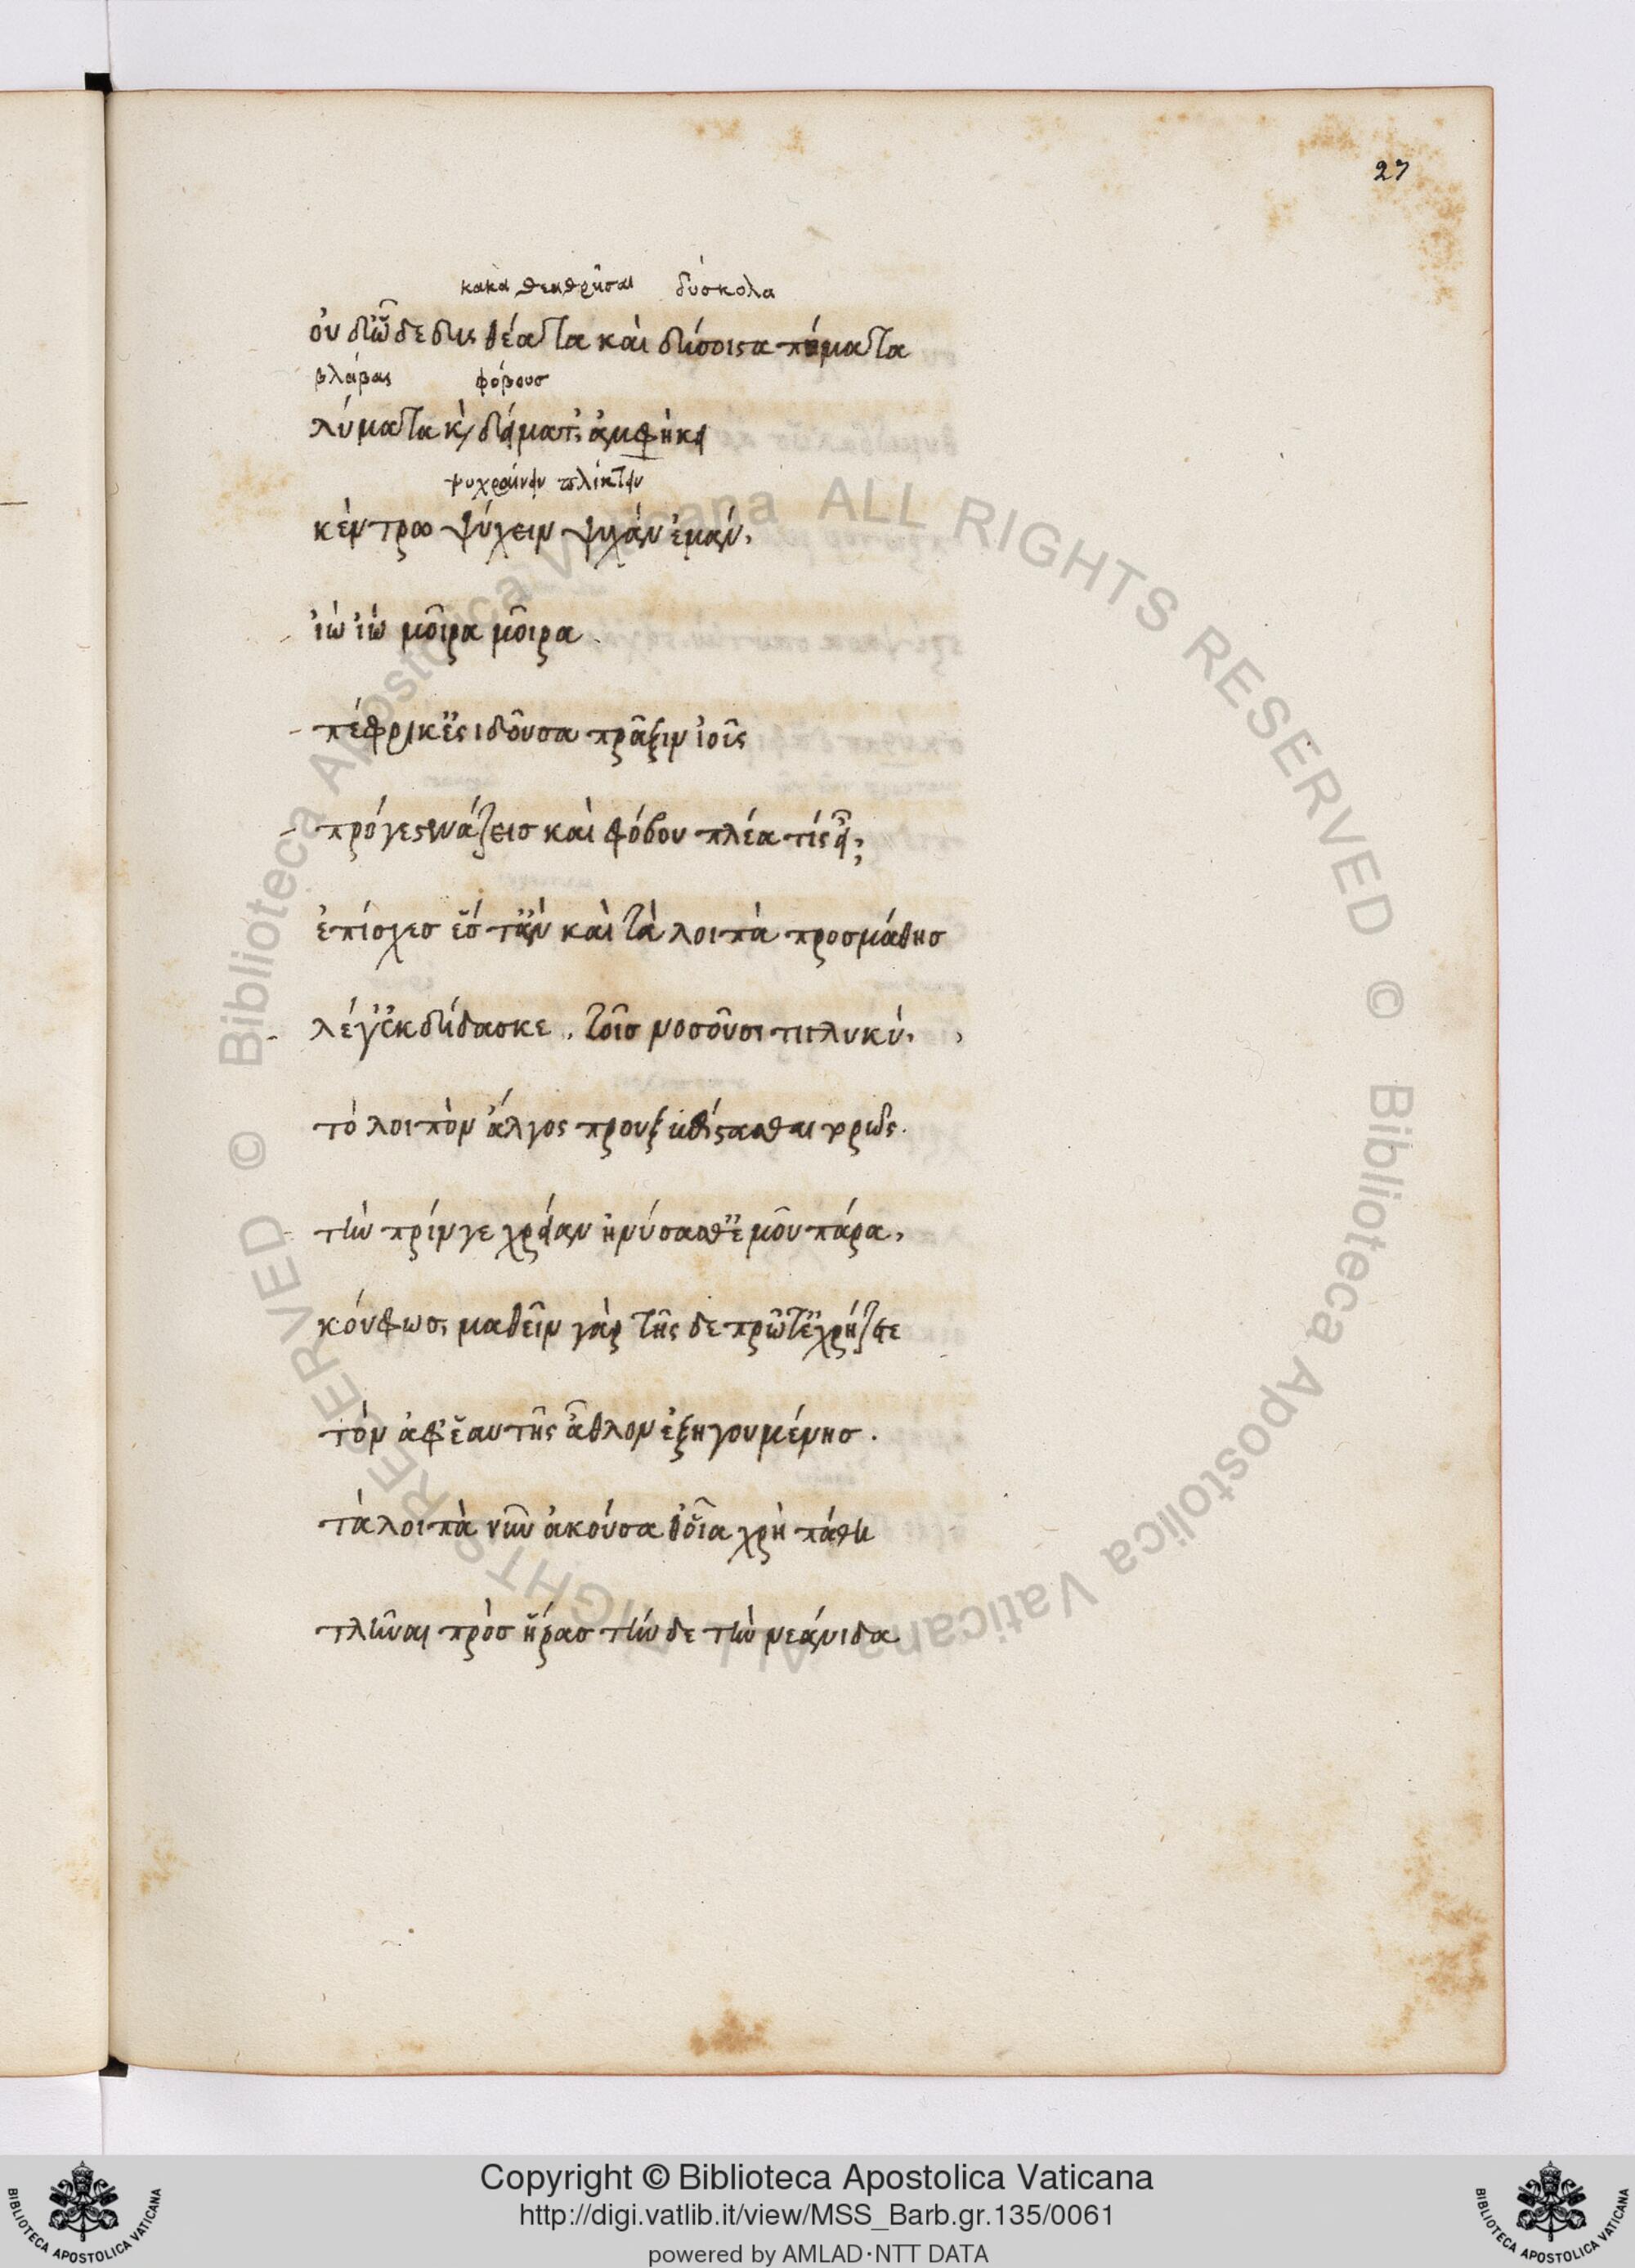 27
κακὰ θεαθρῆσαι δύσκολα
οὐδ' ὧδε δυσθέατα καὶ δύσοιστα πήματα
βλάβας φόβους
λύματα κ̀ δείματ' ἀμφήκει
ψυχραίνειν πλήκτειν
κέντρω ψύχειν ψυχὰν ἐμάν,
ἰὼ ἰὼ μοῖρα μοῖρα
πέφρικ' εἰσιδοῦσα πρᾶξιν ἰοῖς
πρόγε στενάζεις καὶ φόβου πλέα τίς εἶ;
ἐπίσχες ἔστ' ἂν καὶ τὰ λοιπὰ προσμάθης
λέγ' ἐκδίδασκε. τοῖς νοσοῦσι τι γλυκύ,
τὸ λοιπὸν ἄλγος προυξεπίστασθαι τορῶς.
τὴν πρίν γε χρείαν ἠνύσασθ' ἐμοῦ πάρα,
κούφως, μαθεῖν γὰρ τῆς δε πρῶτ' ἐχρήζετε
τὸν ἀφ' ἑαυτῆς ἆθλον ἐξηγουμένης.
τὰ λοιπὰ νῦν ἀκούσαθ' οἷα χρὴ πάθη
τλῆναι πρὸς ἥρας τήν δε τὴν νεάνιδα
Copyright © Biblioteca Apostolica Vaticana
http://digi.vatlib.it/view/MSS_Barb.gr.135/0061
powered by AMLAD·NTT DATA
BIBLIOTECA APOSTOLICA VATICANA
BIBLIOTECA APOSTOLICA VATICANA
© Biblioteca Apostolica Vaticana ALL RIGHTS RESERVED © Biblioteca Apostolica Vaticana ALL RIGHTS RESERVED